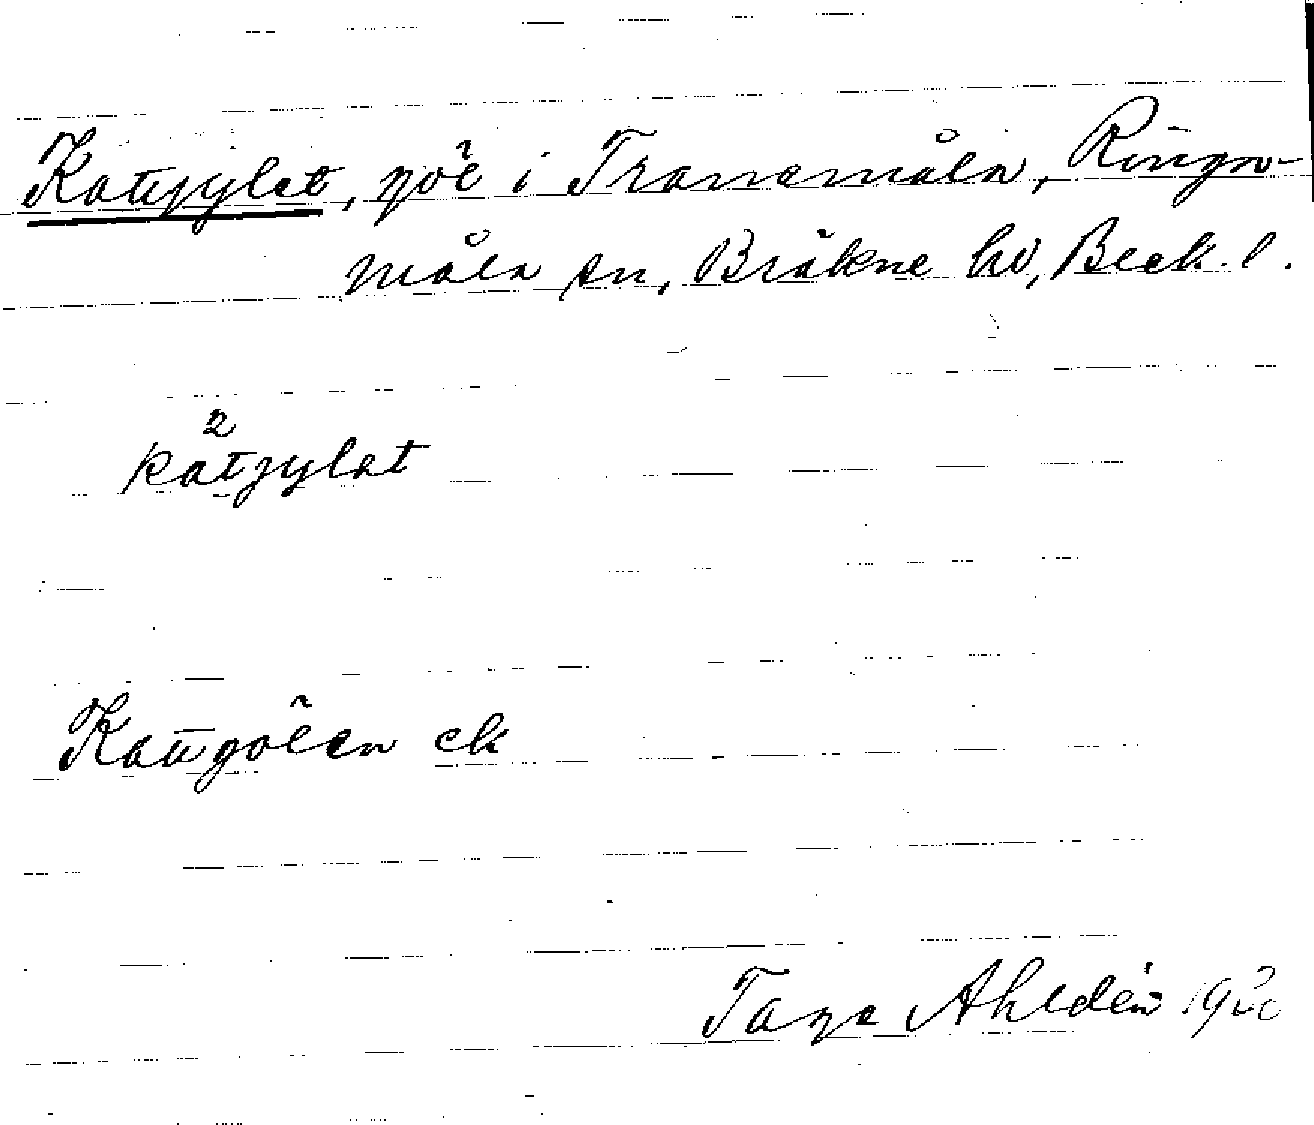 Kattgylet, göl i Tranemåla, Ringa-
måla sn, Bräkne hd, Blek. l.
2
katgylet
Kattgölen ek
Tage Ahldén 1920